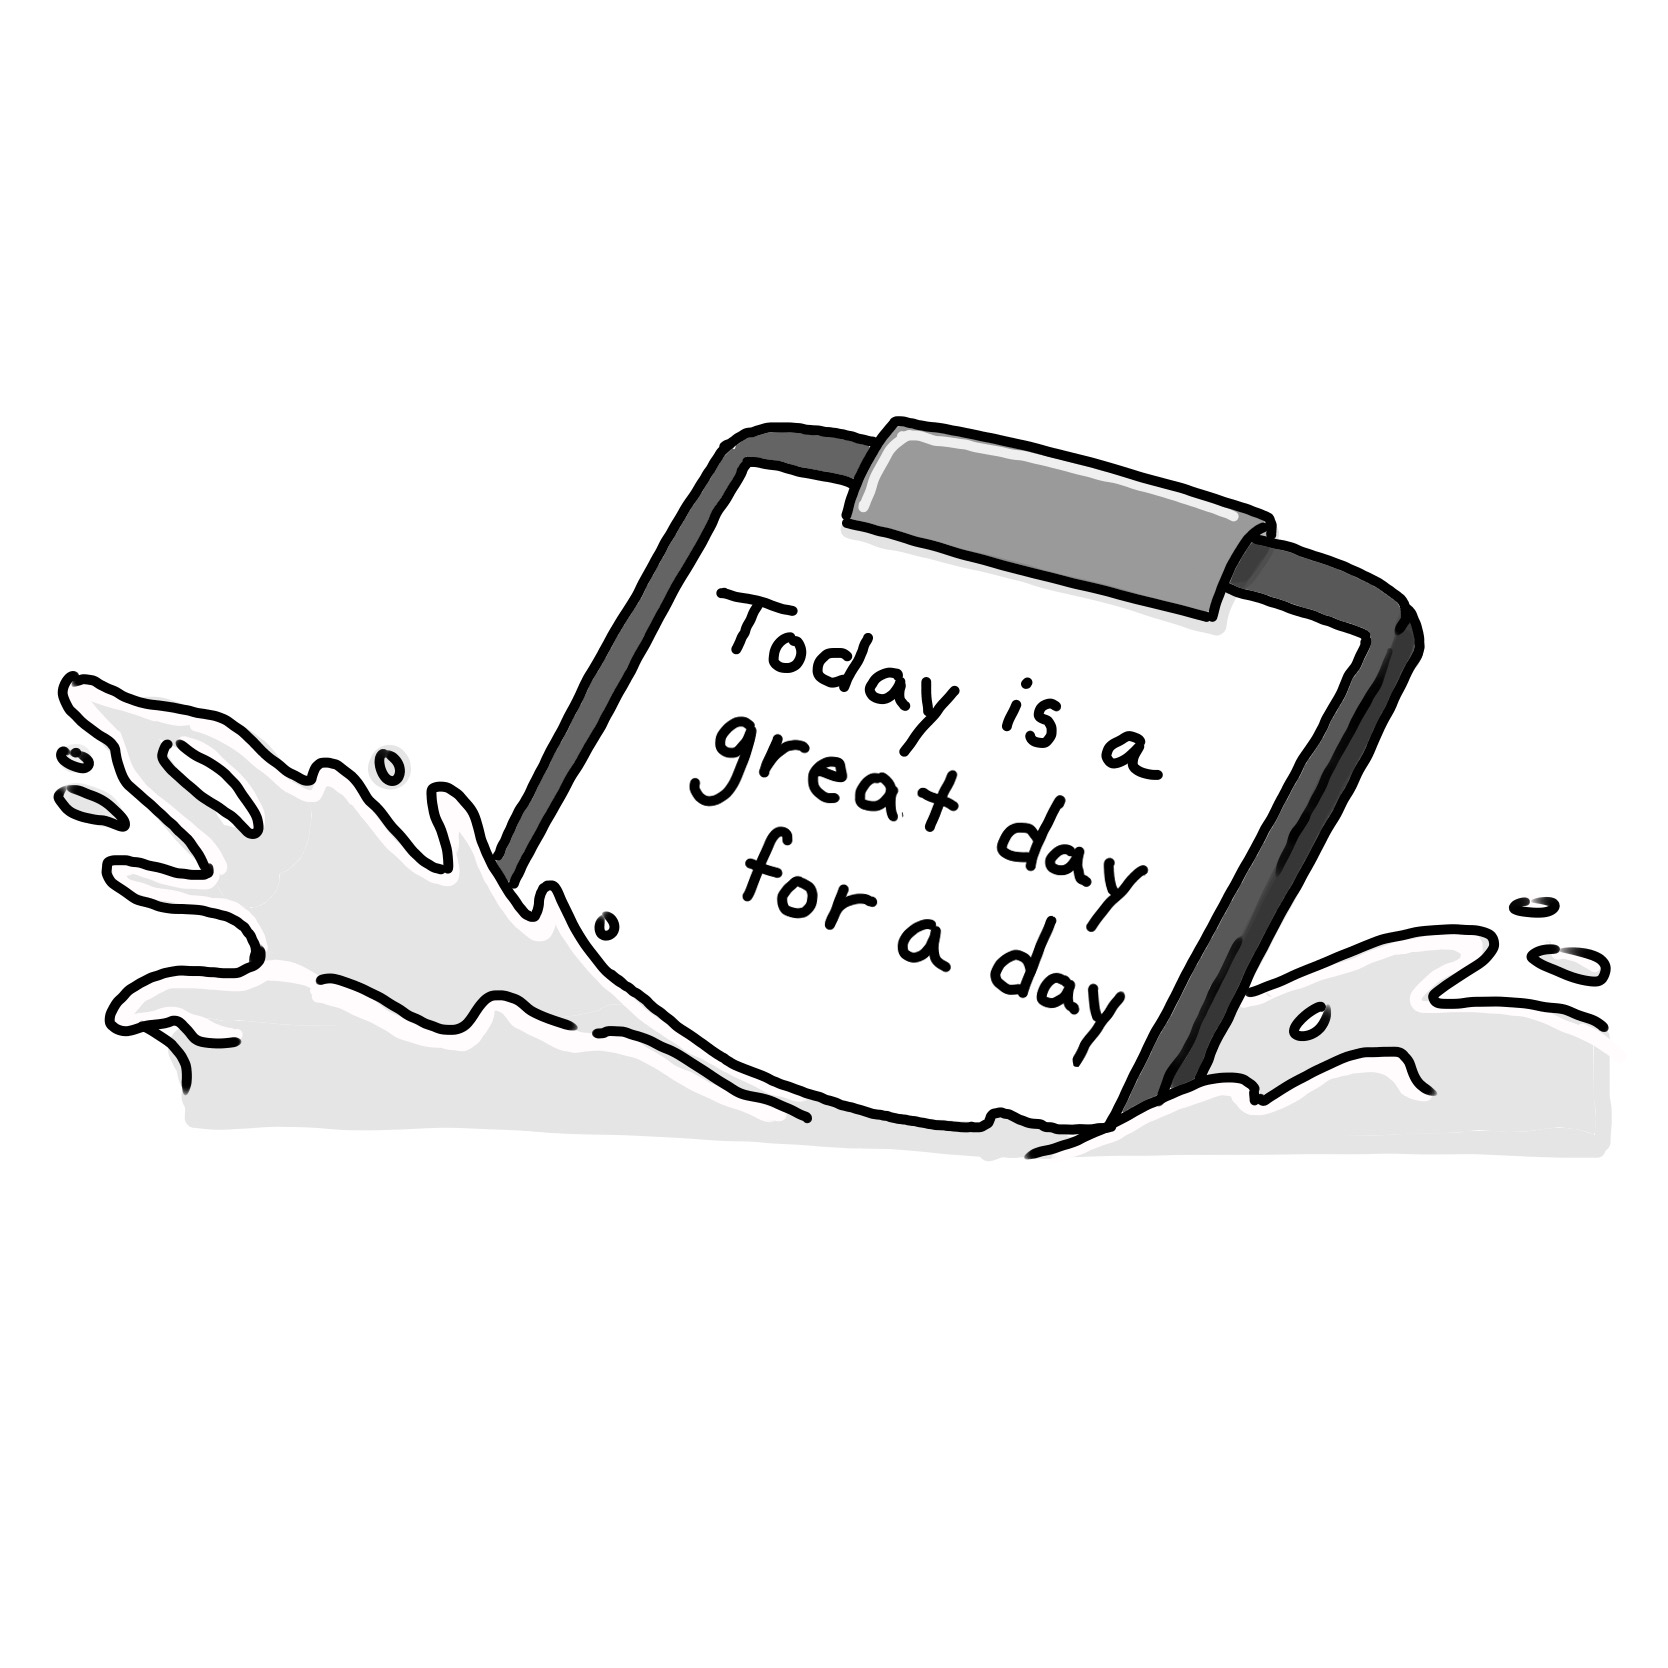 Today is a
great day
for a day